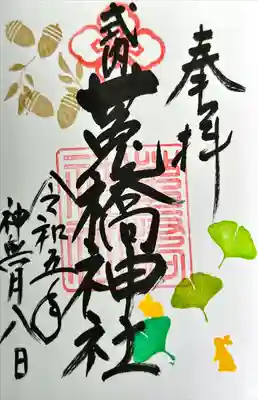 奉拝
式内
莵橋神社
令和五年
神無月八日